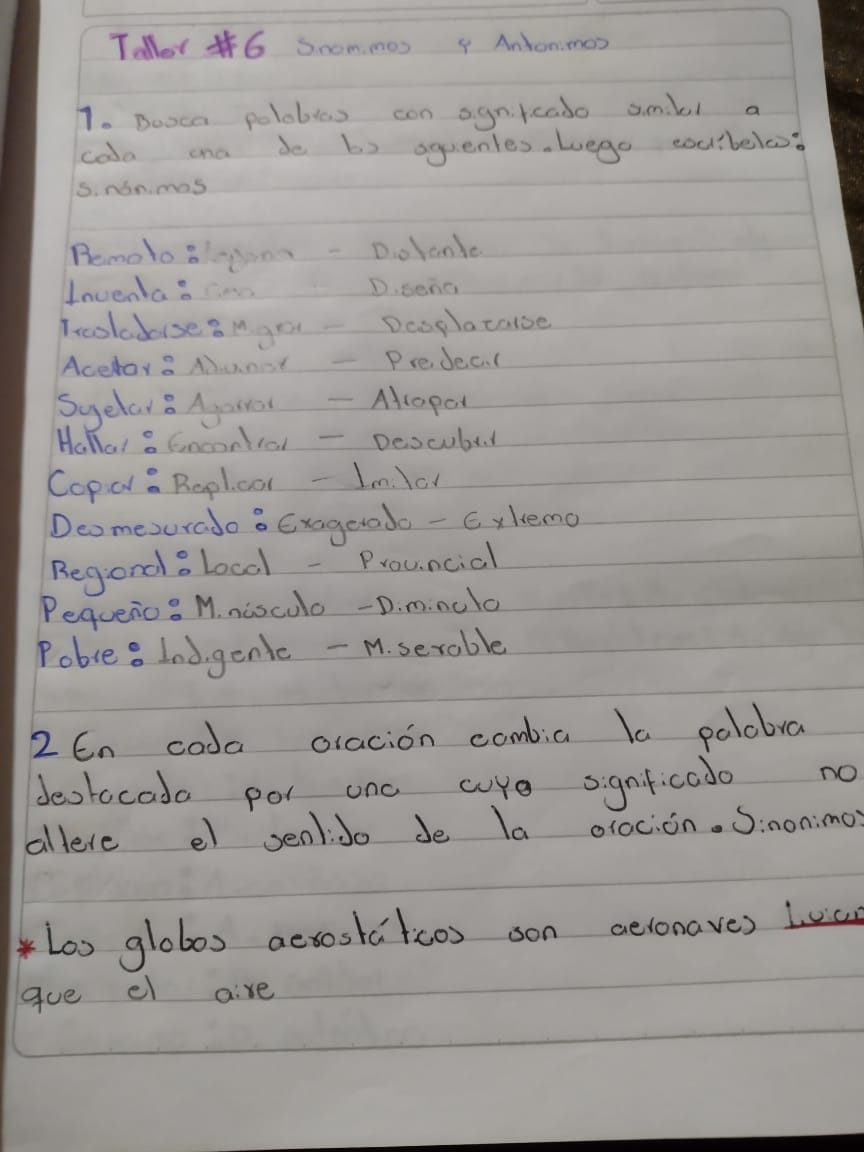 Taller #6 Sinonimos y Antonimos
1. Busca palabras con significado similar a
cada una de las siguientes. Luego escribelas:
sinónimos
Remoto: - Distante
Inventa: Diseña
Trasladarse: Migrar - Desplazarse
Acertar: Adivinar - Predecir
Sujetar: Agarrar - Atrapar
Hallar: Encontrar - Descubrir
Copiar: Replicar - Imitar
Desmesurado: Exagerado - Extremo
Regional: Local - Provincial
Pequeño: Minúsculo - Diminuto
Pobre: Indigente - Miserable
2 En cada oración cambia la palabra
destacada por una cuyo significado no
altere el sentido de la oración. Sinonimos
* Los globos aerostáticos son aeronaves
que el aire